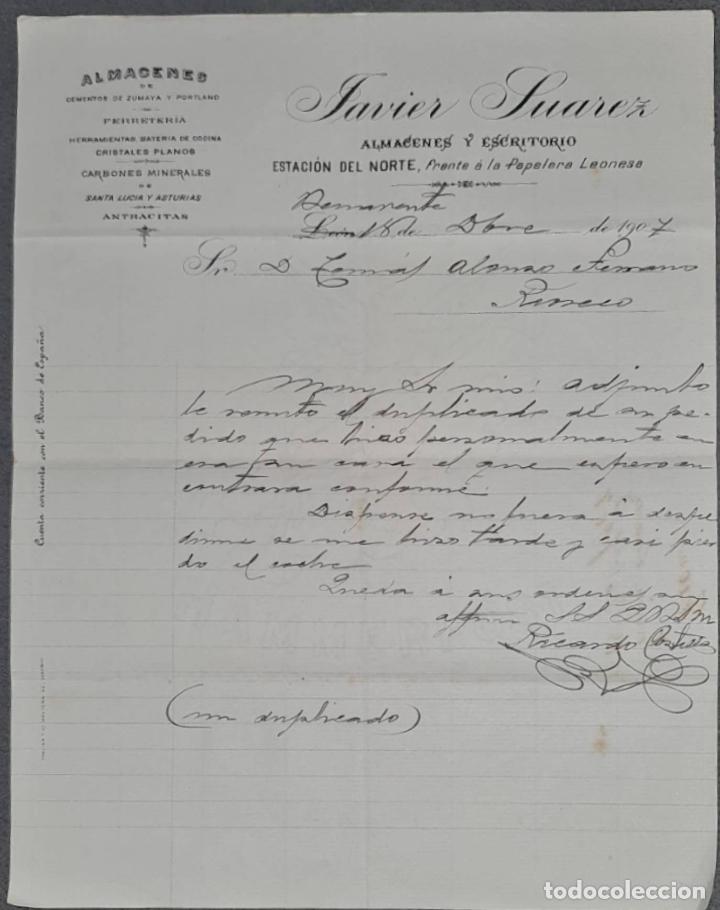 ALMACENES
DE
CEMENTOS DE ZUMAYA Y PORTLAND
FERRETERÍA
HERRAMIENTAS, BATERIA DE COCINA
CRISTALES PLANOS
CARBONES MINERALES
DE
SANTA LUCIA Y ASTURIAS
ANTRACITAS
Javier Suarez
ALMACENES Y ESCRITORIO
ESTACIÓN DEL NORTE, Frente á la Papelera Leonesa
Benavente
León 18 de Dbre de 1907
Sr. D Tomás Alonso
Rioseco
Cuenta corriente con el Banco de España
Muy Sr mio: adjunto
le remito el duplicado de su pe-
dido que hizo personalmente en
esa su casa el que espero en
contrara conforme.
Dispense no fuera á despe
dirme se me hizo tarde y casi pier
do el coche
Queda á sus ordenes su
affmo SS
Ricardo
(un duplicado)
todocoleccion